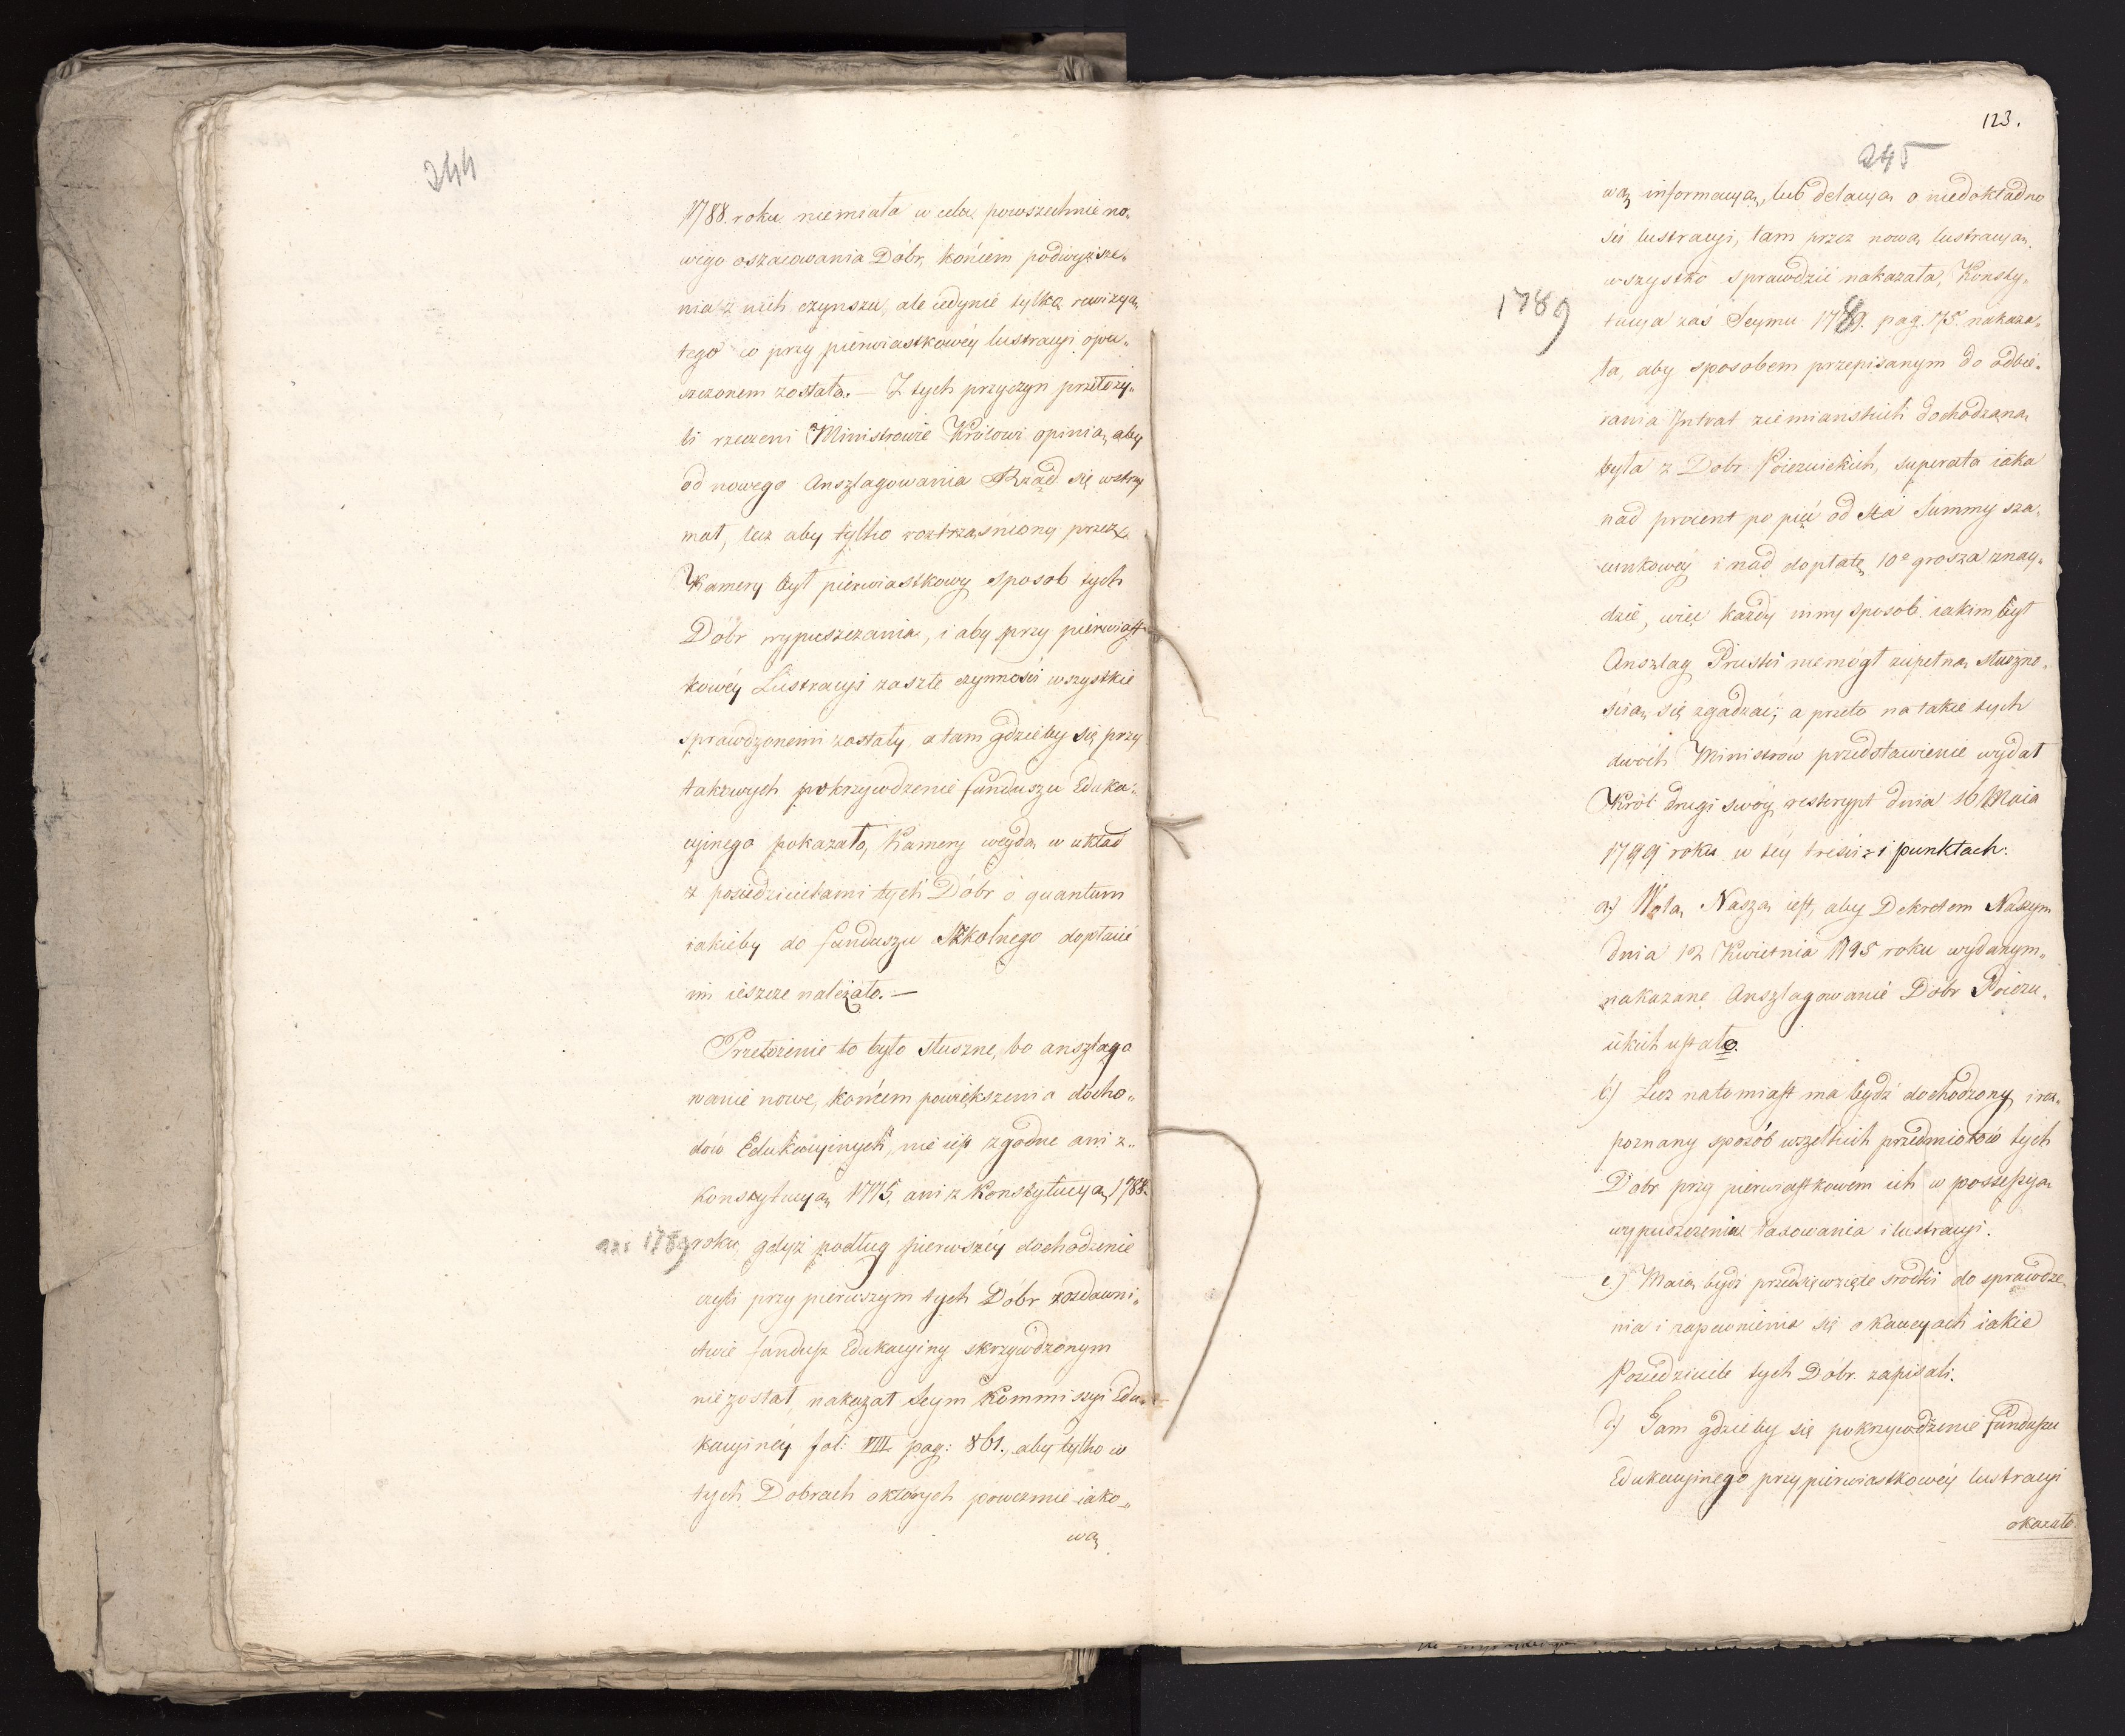 244
1788. roku niemiała w celu powszechnie no„
wego oszacowania Dóbr, końcem podwyższe„
nia z nich czynszu, ale iedynie tylko rewizyą
tego co przy pierwiastkowéy lustracyi opu„
szczonem zostało. — Z tych przyczyn przełoży„
li rzeczeni Ministrowie Królowi opinią, aby
od nowego Anszlagowania Rząd się wstrzy
mał, lecz aby tylko roztrząśniony przez
Kamery był pierwiastkowy sposob tych
Dobr wypuszczania, i aby przy pierwiast
kowéy Lustracyi zaszłe czynności wszystkie
sprawdzonemi zostały, a tam gdzieby się przy
takowych pokrzywdzenie funduszu Eduka„
cyinego pokazało, Kamery weydą w układ
z posiedzicielami tych Dóbr o quantum
iakieby do funduszu Szkolnego dopłacić
im ieszcze należało. —
Przełożenie to było słuszne, bo anszlago
wanie nowe, końcem powiększenia docho„
dów Edukacyinych, nie iest zgodne ani z„
Konstytucyą 1775, ani z Konstytucyą 1788.
ani 1789 roku, gdyż podług pierwszéy dochodzenie
czyli przy pierwszym tych Dóbr rozdawni„
ctwie fundusz Edukacyiny skrzywdzonym
nie został, nakazał Seym Kommissyi Edu„
kacyinéy fol: VIII pag: 861., aby tylko w
tych Dobrach o których poweźmie iako„
wą
123.
245
wą informacyą, lub delacyą o niedokładno
ści lustracyi, tam przez nową lustracyą
wszystko sprawdzić nakazała, Konsty„
1789
tucya zaś Seymu 1789. pag. 75. nakaza„
ła, aby sposobem przepisanym do odbie„
rania Intrat ziemiańskich dochodzaną
była z Dobr Poiezuickich, superata iaka
nad procent po pięć od sta Summy sza„
cunkowéy i nad dopłatę 10º grosza znay„
dzie, więc każdy inny sposob iakim był
Anszlag Pruski niemógł zupełną słuszno„
ścią się zgadzać; a przeto na takie tych
dwóch Ministrow przedstawienie wydał
Król drugi swóy reskrypt dnia 16 Maia
1799 roku w téy treści i punktach.
a) Wolą Naszą iest, aby Dekretem Naszym
dnia 12 Kwietnia 1798 roku wydanym„
nakazane Anszlagowanie Dobr Poiezu„
ickich ustało.
b) Lecz natomiast ma bydź dochodzony i roz„
poznany sposób wszelkich przedmiotów tych
Dobr przy pierwiastkowém ich w possessyą
wypuszczenia taxowania i lustracyi.
c) Maią bydź przedsięwzięte srodki do sprawdze
nia i zapewnienia się o Kaucyach iakie
Posiedziciele tych Dóbr zapisali.
d) Tam gdzieby się pokrzywdzenie funduszu
Edukacyinego przy pierwiastkowéy lustracyi
okazało